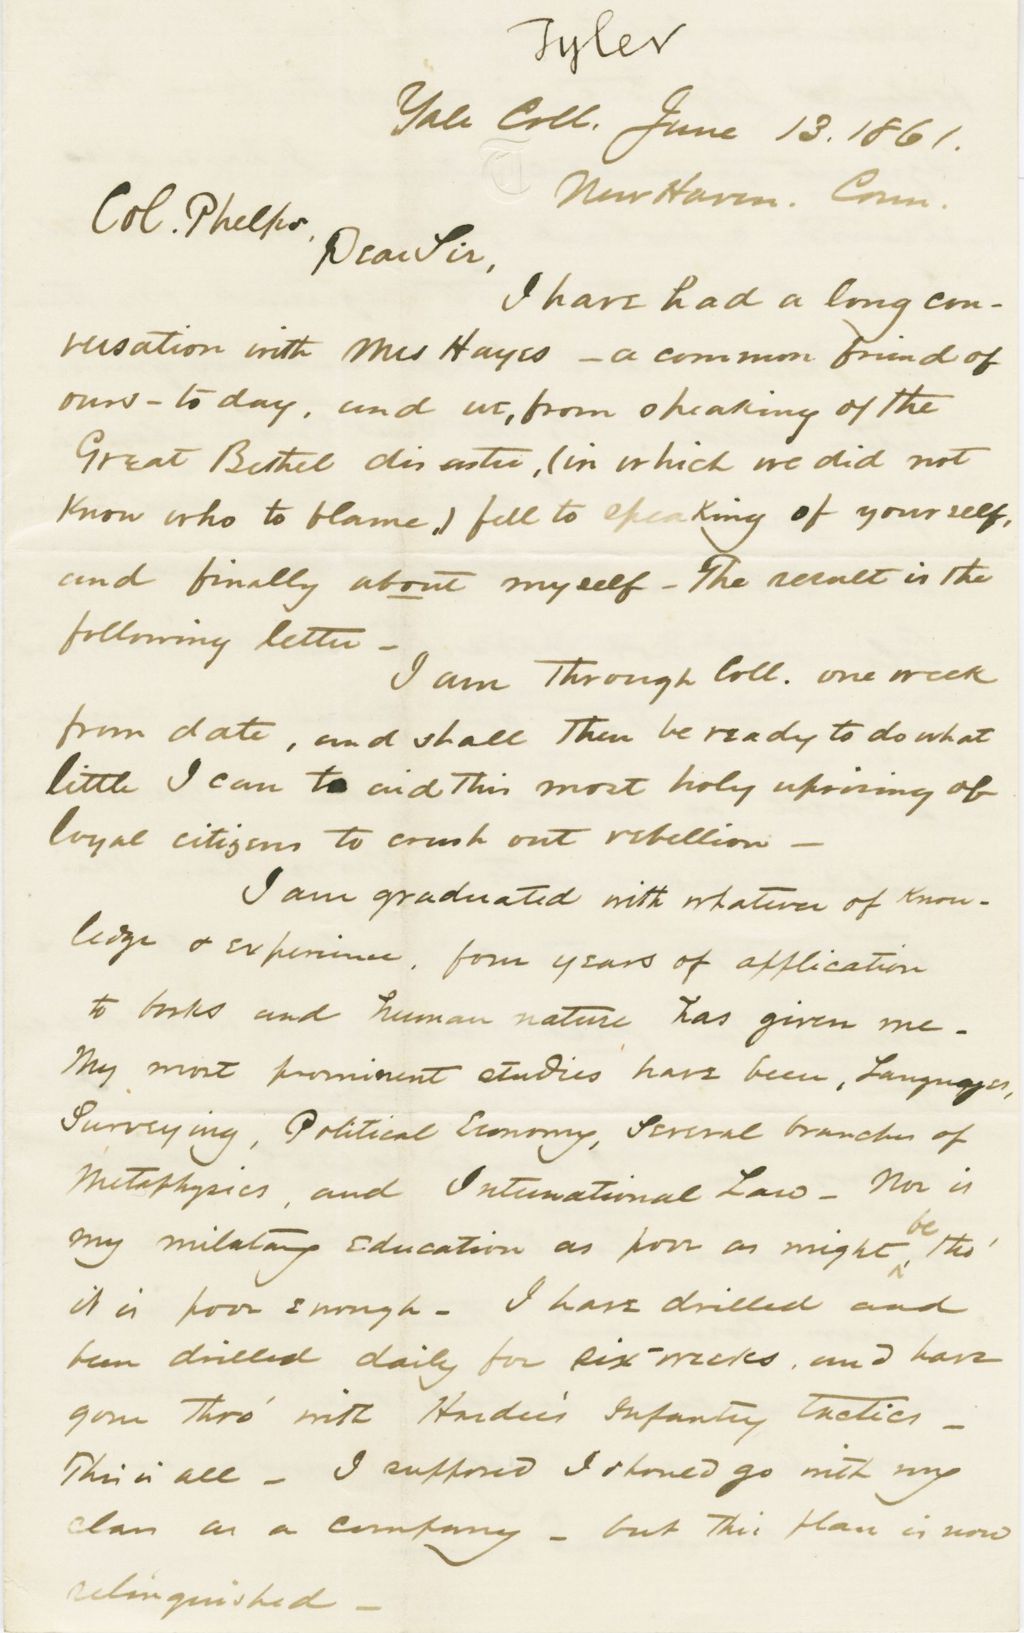 Tyler
Yale Coll. June 13. 1861.
New Haven. Conn.
Col. Phelps,
Dear Sir,
I have had a long con-
versation with Mrs Hayes - a common friend of
ours - to day, and we, from speaking of the
Great Bethel disaster, (in which we did not
know who to blame,) fell to speaking of yourself,
and finally about myself - The result is the
following letter -
I am through Coll. one week
from date, and shall then be ready to do what
little I can to aid this most holy uprising of
loyal citizens to crush out rebellion -
I am graduated with whatever of know-
ledge & experience, four years of application
to books and human nature has given me -
My most prominent studies have been, Languages,
Surveying, Political Economy, Several branches of
Metaphysics, and International Law - Nor is
my military education as poor as might be, tho'
it is poor enough - I have drilled and
been drilled daily for six weeks, and have
gone thro' with Hardee's Infantry tactics -
This is all - I supposed I should go with my
class as a company - but this plan is now
relinquished -